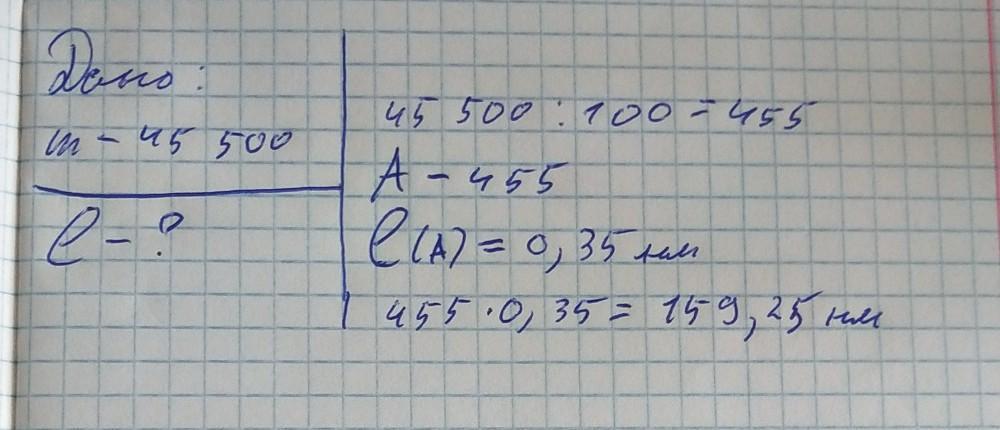 Дано:
m - 45 500
l - ?
45 500 : 100 = 455
A - 455
l(A) = 0,35 нм
455 · 0,35 = 159,25 нм